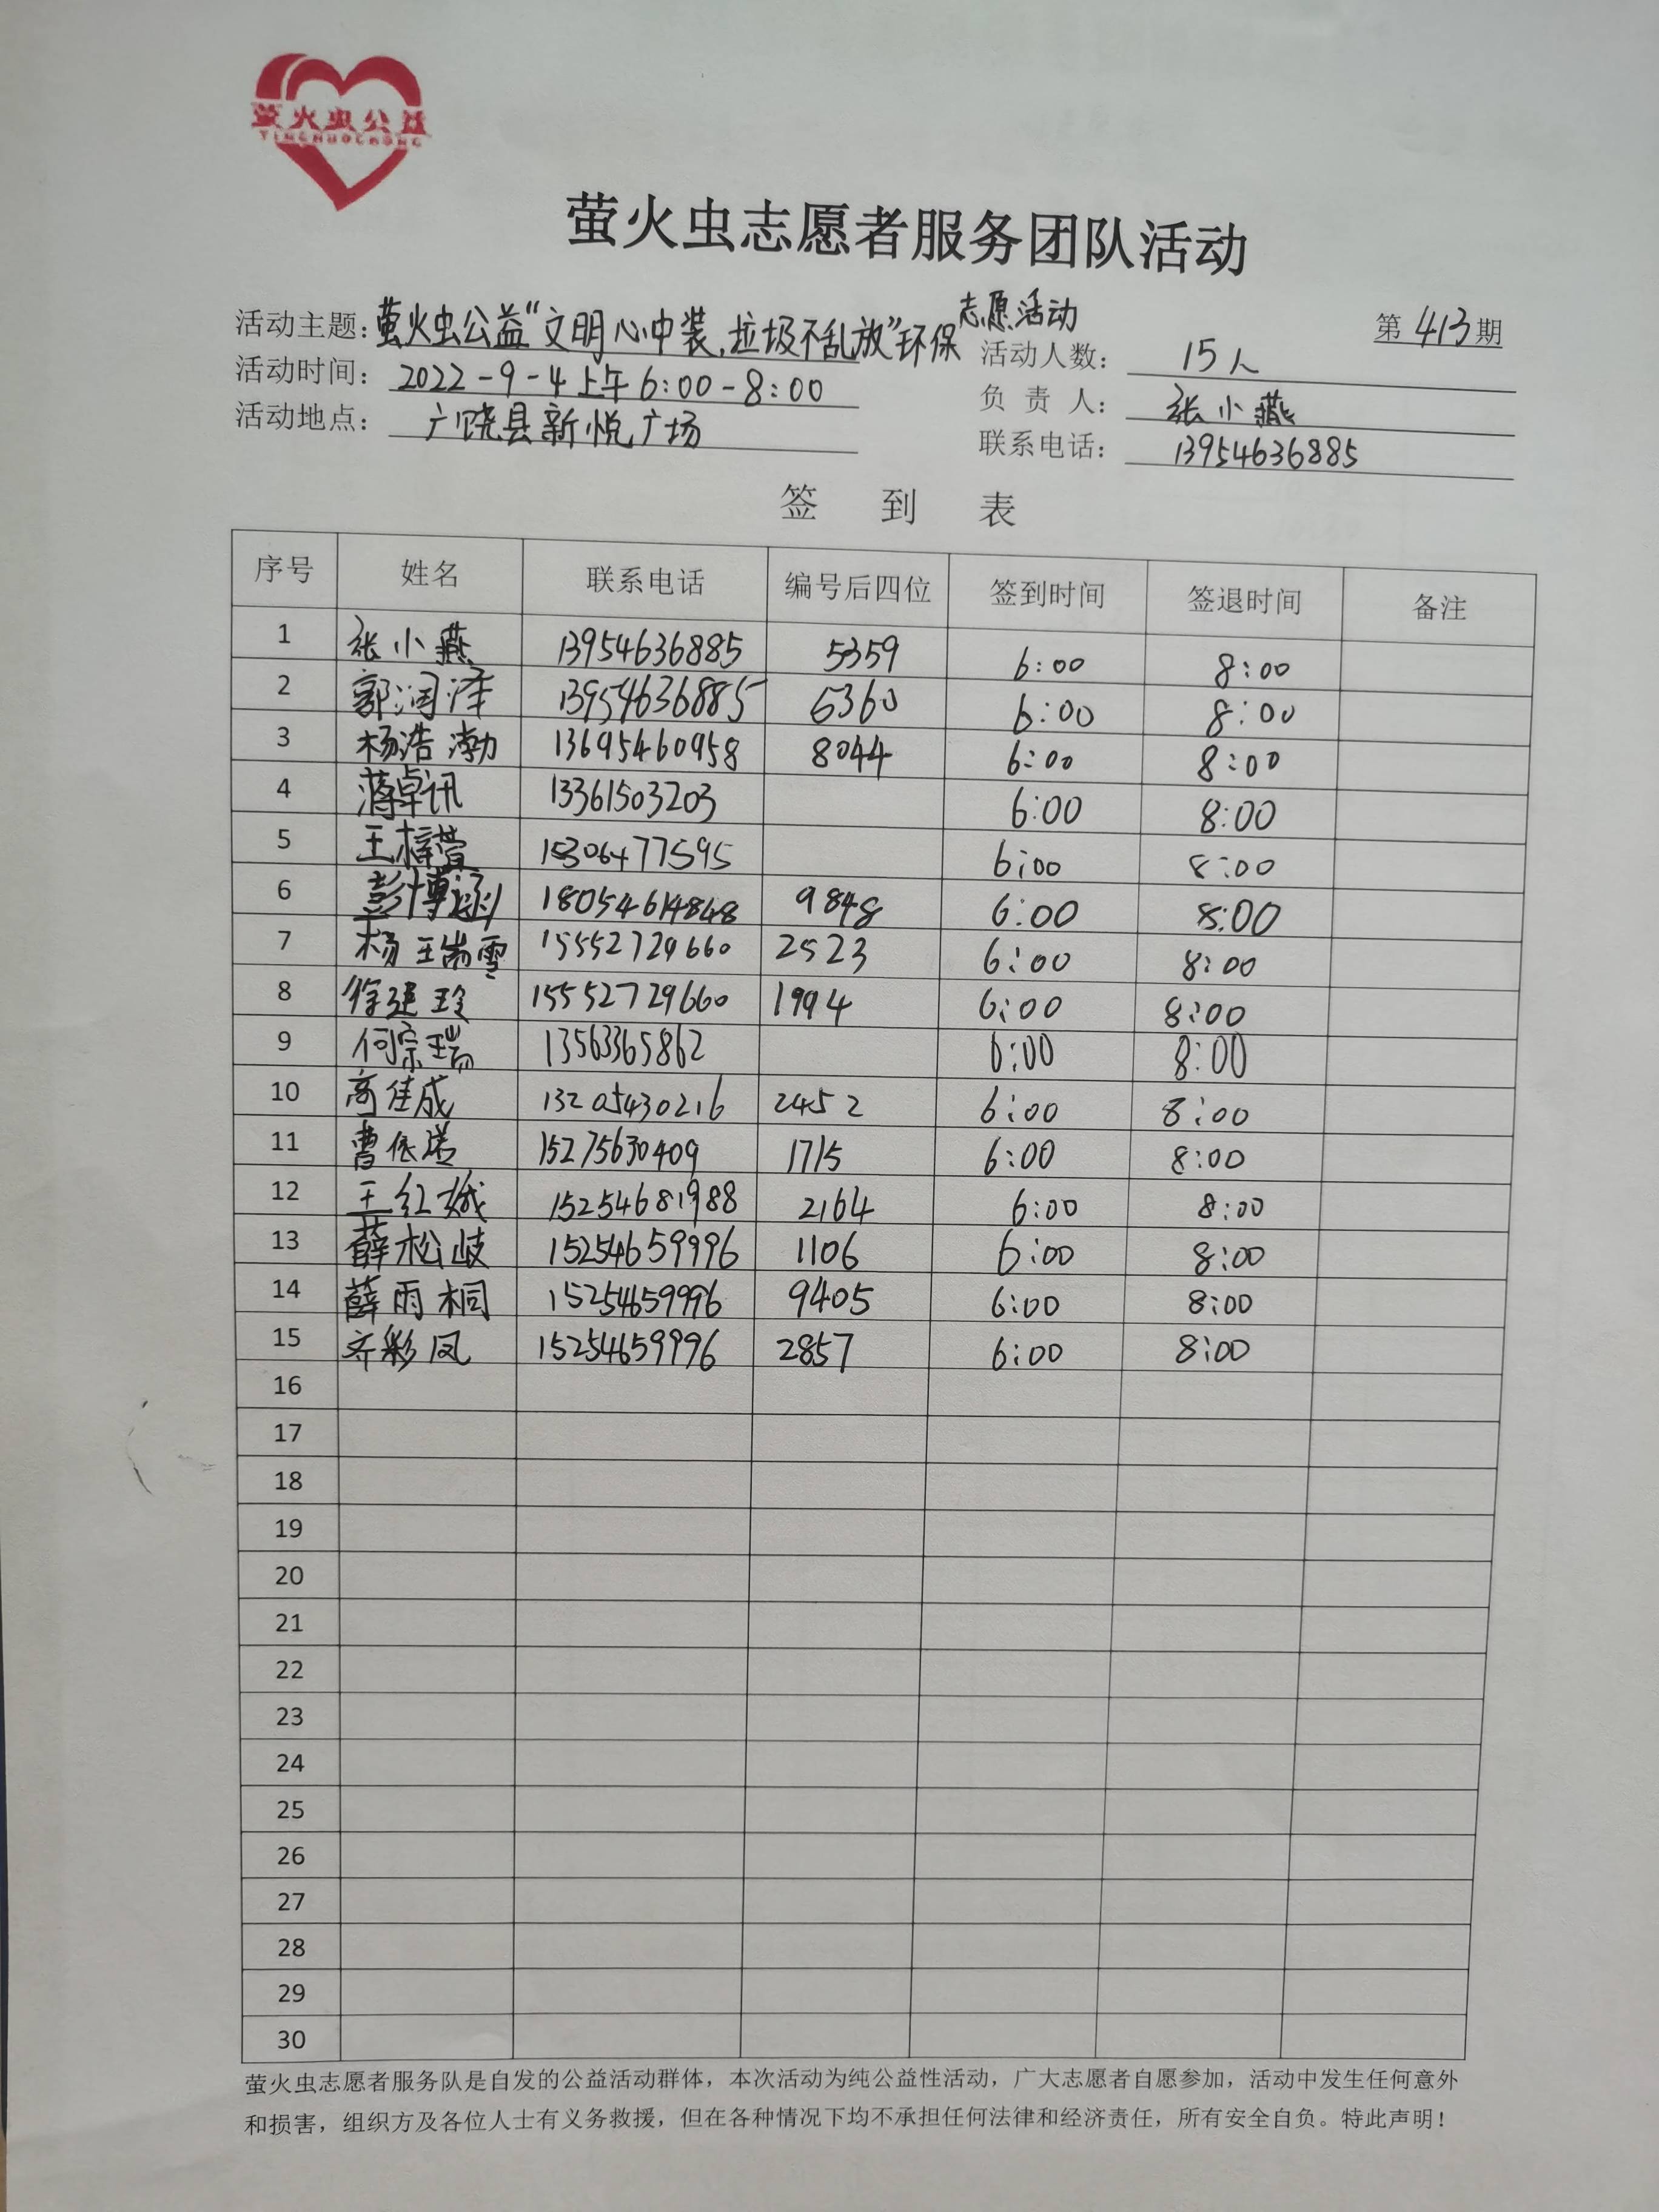 萤火虫公益
YINGHUOCHONG
萤火虫志愿者服务团队活动
活动主题：萤火虫公益“文明心中装，垃圾不乱放”环保志愿活动 第413期
活动时间：2022-9-4上午6:00-8:00 活动人数：15人
活动地点：广饶县新悦广场 负责人：张小燕
联系电话：13954636885
签到表
序号 姓名 联系电话 编号后四位 签到时间 签退时间 备注
1 张小燕 13954636885 5359 6:00 8:00
2 郭润泽 13954636885 5360 6:00 8:00
3 杨浩渤 13695460958 8044 6:00 8:00
4 蒋卓讯 13361503203 6:00 8:00
5 王梓萱 15306477595 6:00 8:00
6 彭博涵 18054614848 9848 6:00 8:00
7 杨瑞雪 15552729660 2523 6:00 8:00
8 徐建玲 15552729660 1994 6:00 8:00
9 何宗瑞 13563365862 6:00 8:00
10 高佳成 13205430216 2452 6:00 8:00
11 曹依 15275630409 1715 6:00 8:00
12 王红娥 15254681988 2164 6:00 8:00
13 薛松岐 15254659996 1106 6:00 8:00
14 薛雨桐 15254659996 9405 6:00 8:00
15 齐彩凤 15254659996 2857 6:00 8:00
16
17
18
19
20
21
22
23
24
25
26
27
28
29
30
萤火虫志愿者服务队是自发的公益活动群体，本次活动为纯公益性活动，广大志愿者自愿参加，活动中发生任何意外
和损害，组织方及各位人士有义务救援，但在各种情况下均不承担任何法律和经济责任，所有安全自负。特此声明！